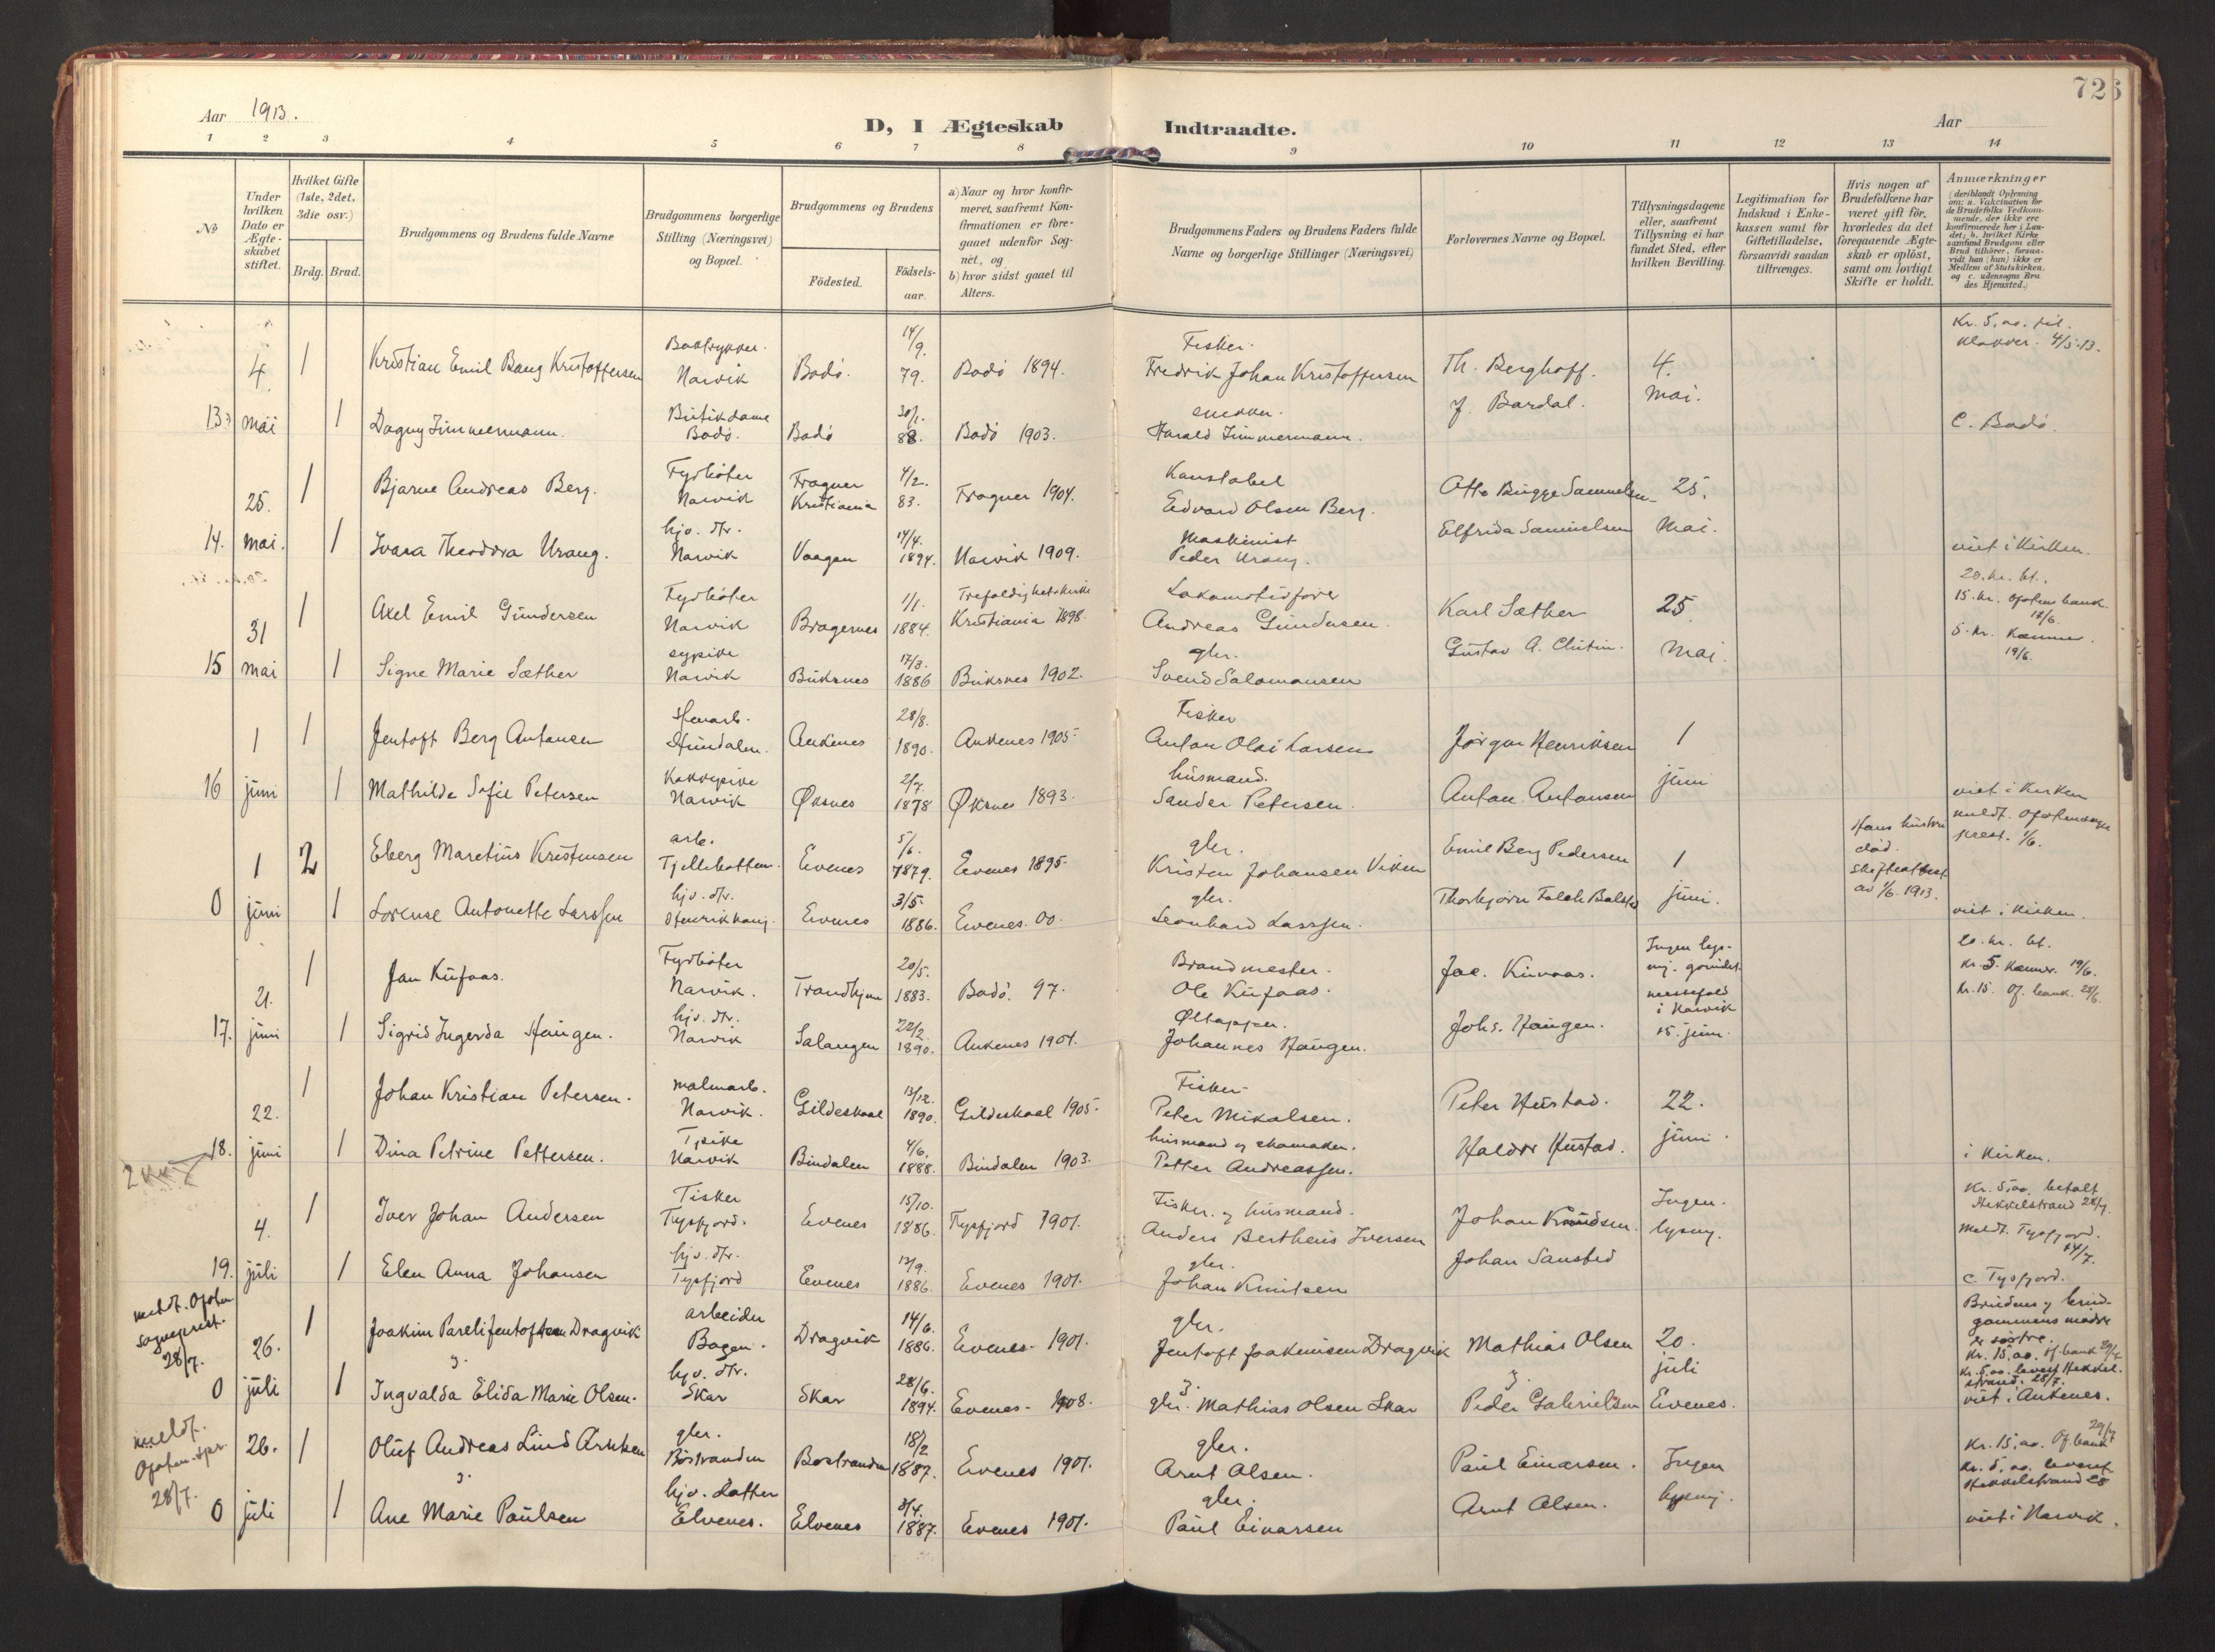 726
Aar 1913.
D, I Ægteskab Indtraadte.
Aar
1 2 3 4 5 6 7 8 9 10 11 12 13 14
№
Under hvilken Dato er Ægteskabet stiftet.
Hvilket Gifte (1ste, 2det, 3die osv.)
Brdg. Brud.
Brudgommens og Brudens fulde Navne
Brudgommens borgerlige Stilling (Næringsvei) og Bopæl.
Brudgommens og Brudens
Fødested. Fødsels-aar.
a) Naar og hvor konfirmeret, saafremt Konfirmationen er foregaaet udenfor Sognet, og
b) hvor sidst gaaet til Alters.
Brudgommens Faders og Brudens Faders fulde Navne og borgerlige Stillinger (Næringsvei)
Forlovernes Navne og Bopæl.
Tillysningsdagene eller, saafremt Tillysning ei har fundet Sted, efter hvilken Bevilling.
Legitimation for Indskud i Enkekassen samt for Giftetilladelse, forsaavidt saadan tiltrænges.
Hvis nogen af Brudefolkene har været gift før, hvorledes da det foregaaende Ægteskab er opløst, samt om lovligt Skifte er holdt.
Anmærkninger
(deriblandt Oplysning om: a. Vakcination for de Brudefolks Vedkommende, der ikke ere konfirmerede her i Landet; b. hvilket Kirkesamfund Brudgom eller Brud tilhører, forsaavidt han (hun) ikke er Medlem af Statskirken, og c. udensogns Brudes Hjemsted.)
4. 1 Kristian Emil Bang Kristoffersen Narvik Bodø. 14/9. 79. Bodø 1894. Fisker. Fredrik Johan Kristoffersen Th. Berghoff. 4. mai. Kr. 5,00. til klokker. 4/5.13.
13. mai 1 Dagny Zimmermann. Butikdame Bodø. Bodø 30/1. 88. Bodø 1903. snekker. Harald Zimmermann. J. Bardal. C. Bodø.
25. 1 Bjarne Andreas Berg. Fyrbøter Narvik Frogner Kristiania 4/2. 83. Frogner 1904. Konstabel Edvard Olsen Berg. Otto Bugge Samuelsen 25. Mai.
14. mai. 1 Ivara Theodora Urang. hjv. dtr. Narvik Vaagan 14/4. 1894. Narvik 1909. Maskinist Peder Urang. Elfrida Samuelsen viet i Kirken.
31 1 Axel Emil Gundersen Fyrbøter Narvik Bragernes 1/1. 1884. Trefoldighetskirke Kristiania 1898. Lokomotivfører Andreas Gundersen. Karl Sæther 25. Mai. 20. kr. bt. 15. kr. Ofoten bank. 18/6. 5. kr. Kæmner. 19/6.
15 mai 1 Signe Marie Sæther sypike Narvik Buksnes 17/3. 1886 Buksnes 1902. gbr. Svend Salomonsen Gustav A.
1 1 Jentoft Berg Antonsen stenarb. Ankenes 28/8. 1890. Ankenes 1905. Fisker Anton Olai Larsen Jørgen Henriksen 1 juni
16 juni 1 Mathilde Sofie Petersen Kokkepike Narvik Øksnes 2/7. 1878 Øksnes 1893. husmand. Sander Petersen. Anton Antonsen viet i Kirken
1 2 Eberg Maretius Kristensen arb. Evenes 5/6. 1879. Evenes 1895. gbr. Kristen Johansen Viken Emil Berg Pedersen 1 juni. Hans hustru død. Skifteattest av 1/6. 1913. meldt. Ofotens sogneprest. 1/6.
0 juni 1 Lorense Antonette Larssen hjv. dtr. Evenes 3/5. 1886. Evenes. 00. gbr. Leonhard Larssen. Thorbjørn Falch viet i Kirken.
21. 1 Jan Kufaas. Fyrbøter Narvik. Trondhjem 20/5. 1883. Bodø. 97. Brandmester. Ole Kufaas. Ingen lysning. grundet messefald i Narvik 15. juni. 20. kr. bt. Kr. 5. Kæmner. 19/6. Kr. 15. Of. bank. 25/6.
17. juni 1 Sigrid Ingerda Haugen. hjv. dtr. Narvik Salangen 22/2. 1890. Ankenes 1904. Øltapper. Johannes Haugen. Johs. Haugen.
22. 1 Johan Kristian Petersen. malmarb. Narvik. Gildeskaal 13/12. 1890. Gildeskaal 1905. Fisker. Peter Mikalsen. Peter Hustad. 22. juni.
18. juni 1 Dina Petrine Pettersen. Tj.pike Narvik Bindalen 4/6. 1888. Bindalen 1903. husmand og skomaker. Petter Andreassen. Haldor Hustad. i Kirken.
4. 1 Iver Johan Andersen Fisker Tysfjord. Evenes 15/10. 1886. Tysfjord 1901. Fisker. og husmand. Anders Bertheus Iversen Johan Knudsen. Ingen lysning. Kr. 5,00. betalt Hekkelstrand 28/7. Meldt. Tysfjord. 14/7.
19. juli 1 Elen Anna Johansen hjv. dtr. Tysfjord Evenes 12/9. 1886. Evenes 1901. gbr. Johan Knutsen Johan Sansted c. Tysfjord.
meldt. Ofoten sogneprest. 28/7.
26. 1 Joakim Pareli Jentoftsen Dragvik arbeider Bogen. Dragvik 14/6. 1886. Evenes. 1901. gbr. Jentoft Joakimsen Dragvik Mathias Olsen 20. juli Evenes. Brudens og brudgommens mødre er søstre. Kr. 15,00. Of. bank 29/7. Kr. 5,00. levert Hekkelstrand. 28/7.
0 juli 1 Ingvalda Elida Marie Olsen. hjv. dtr. Skar Skar 28/6. 1894. Evenes. 1908. gbr. Mathias Olsen Skar Peder Gabrielsen viet i Ankenes.
meldt. Ofoten. spr. 28/7.
26. 1 Oluf Andreas Lind Arntsen gbr. Bostranden Bostranden 18/2 1887. Evenes 1901. gbr. Arnt Olsen. Paul Einarsen. Ingen lysning. Kr. 15,00. Of. bank 29/7 Kr. 5,00 levert Hekkelstrand 28
0 juli 1 Ane Marie Paulsen hjv. datter Elvenes. Elvenes 3/4. 1887. Evenes 1901. gbr. Paul Einarsen Arnt Olsen. viet i Narvik.